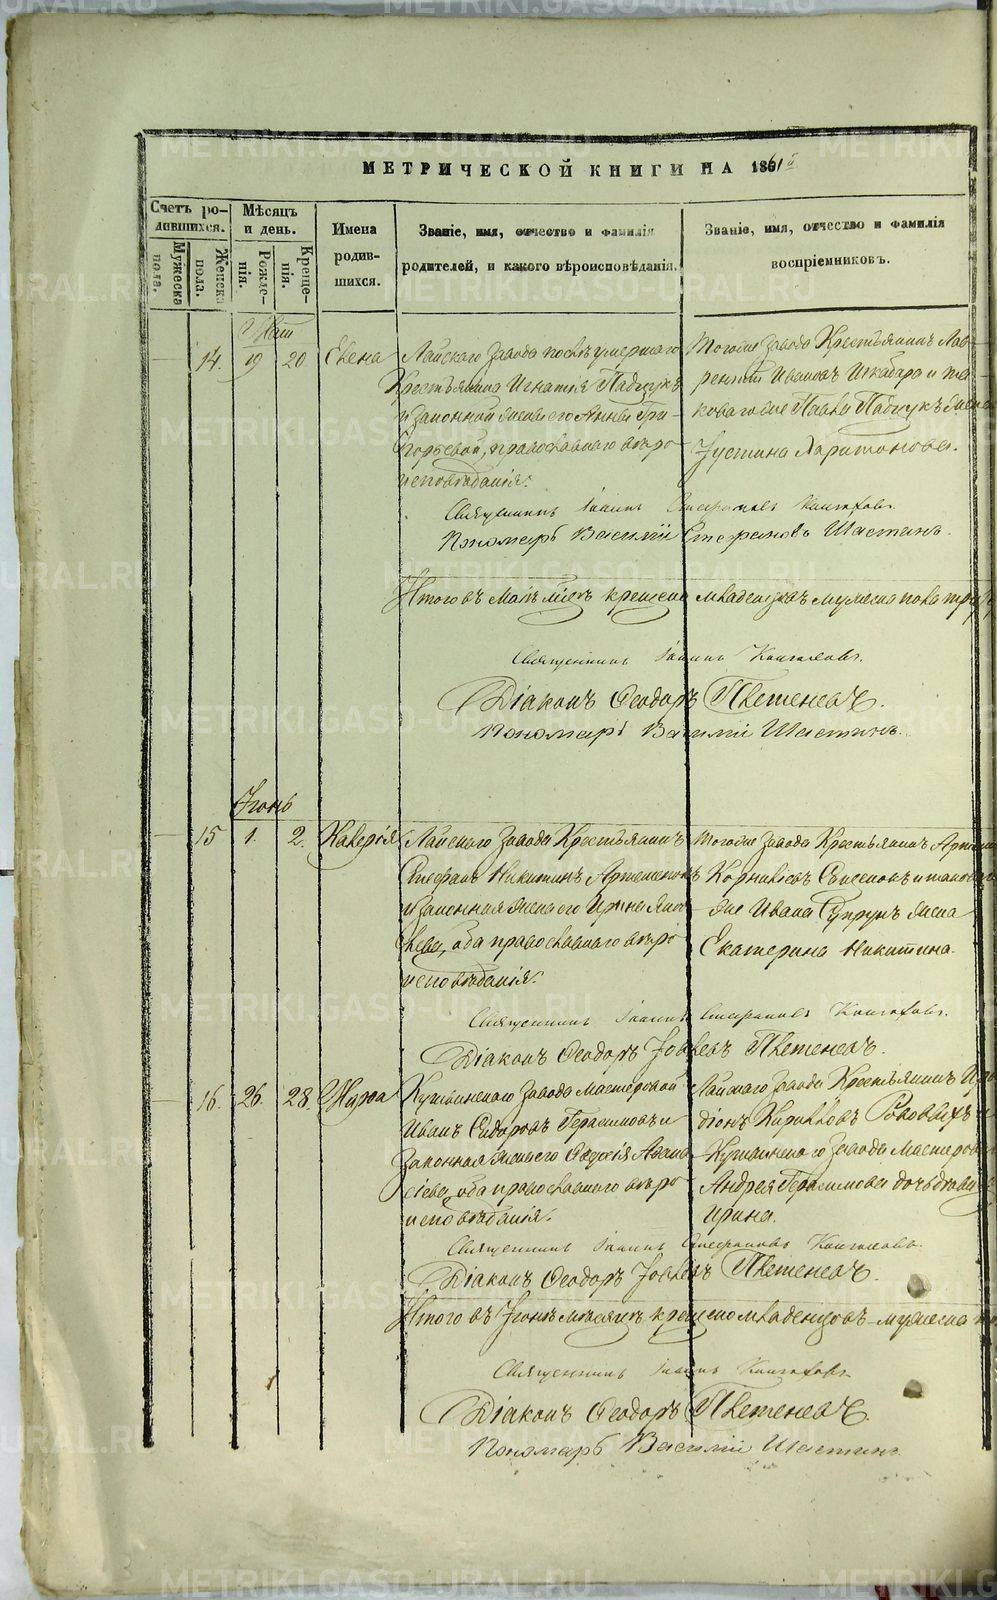 МЕТРИЧЕСКОЙ КНИГИ НА 1861й
Счетъ ро-
дившихся.
Мужеска
пола.
Женска
пола.
Мѣсяцъ
и день.
Рожде-
нія.
Креще-
нія.
Имена
родив-
шихся.
Званіе, имя, отчество и фамилія
родителей, и какого вѣроисповѣданія.
Званіе, имя, отчество и фамилія
воспріемниковъ.
Маій
14. 19 20 Елена
Лайскаго завода послѣ умершаго
Крестьянина Игнатія
и законной жены его Анны Гри-
горьевой, православнаго вѣро-
исповѣданія.
Тогоже завода Крестьянинъ Лав-
рентій Ивановъ и та-
коваго же Павла жена
Іустина Харитонова.
Священникъ Іоаннъ Стефановъ
Пономарь Василій Стефановъ Шастинъ.
Итого въ Маіѣ мѣсяцѣ крещено младенцевъ мужеска пола
Священникъ Іоаннъ
Діаконъ Ѳеодоръ
Пономарь Василій Шастинъ.
Іюнь
15 1. 2. Калерія
Лайскаго завода Крестьянинъ
Стефанъ Никитинъ
и законная жена его Ирина
оба православнаго вѣро-
исповѣданія.
Тогоже завода Крестьянинъ
Корниліевъ и таковаго
же Ивана Супрунъ жена
Екатерина Никитина.
Священникъ Іоаннъ Стефановъ
Діаконъ Ѳеодоръ Іовлевъ
16. 26. 28. Марѳа
Кушвинскаго завода мастеровой
Иванъ Сидоровъ Герасимовъ и
законная жена его Евдокія
оба православнаго вѣро-
исповѣданія.
Лайскаго завода Крестьянинъ
Кирилловъ
Кушвинскаго завода
Андрея Герасимова дочь дѣвица
Ирина.
Священникъ Іоаннъ Стефановъ
Діаконъ Ѳеодоръ Іовлевъ
Итого въ Іюнѣ мѣсяцѣ крещено младенцевъ мужеска
Священникъ Іоаннъ
Діаконъ Ѳеодоръ
Пономарь Василій Шастинъ
METRIKI.GASO-URAL.RU